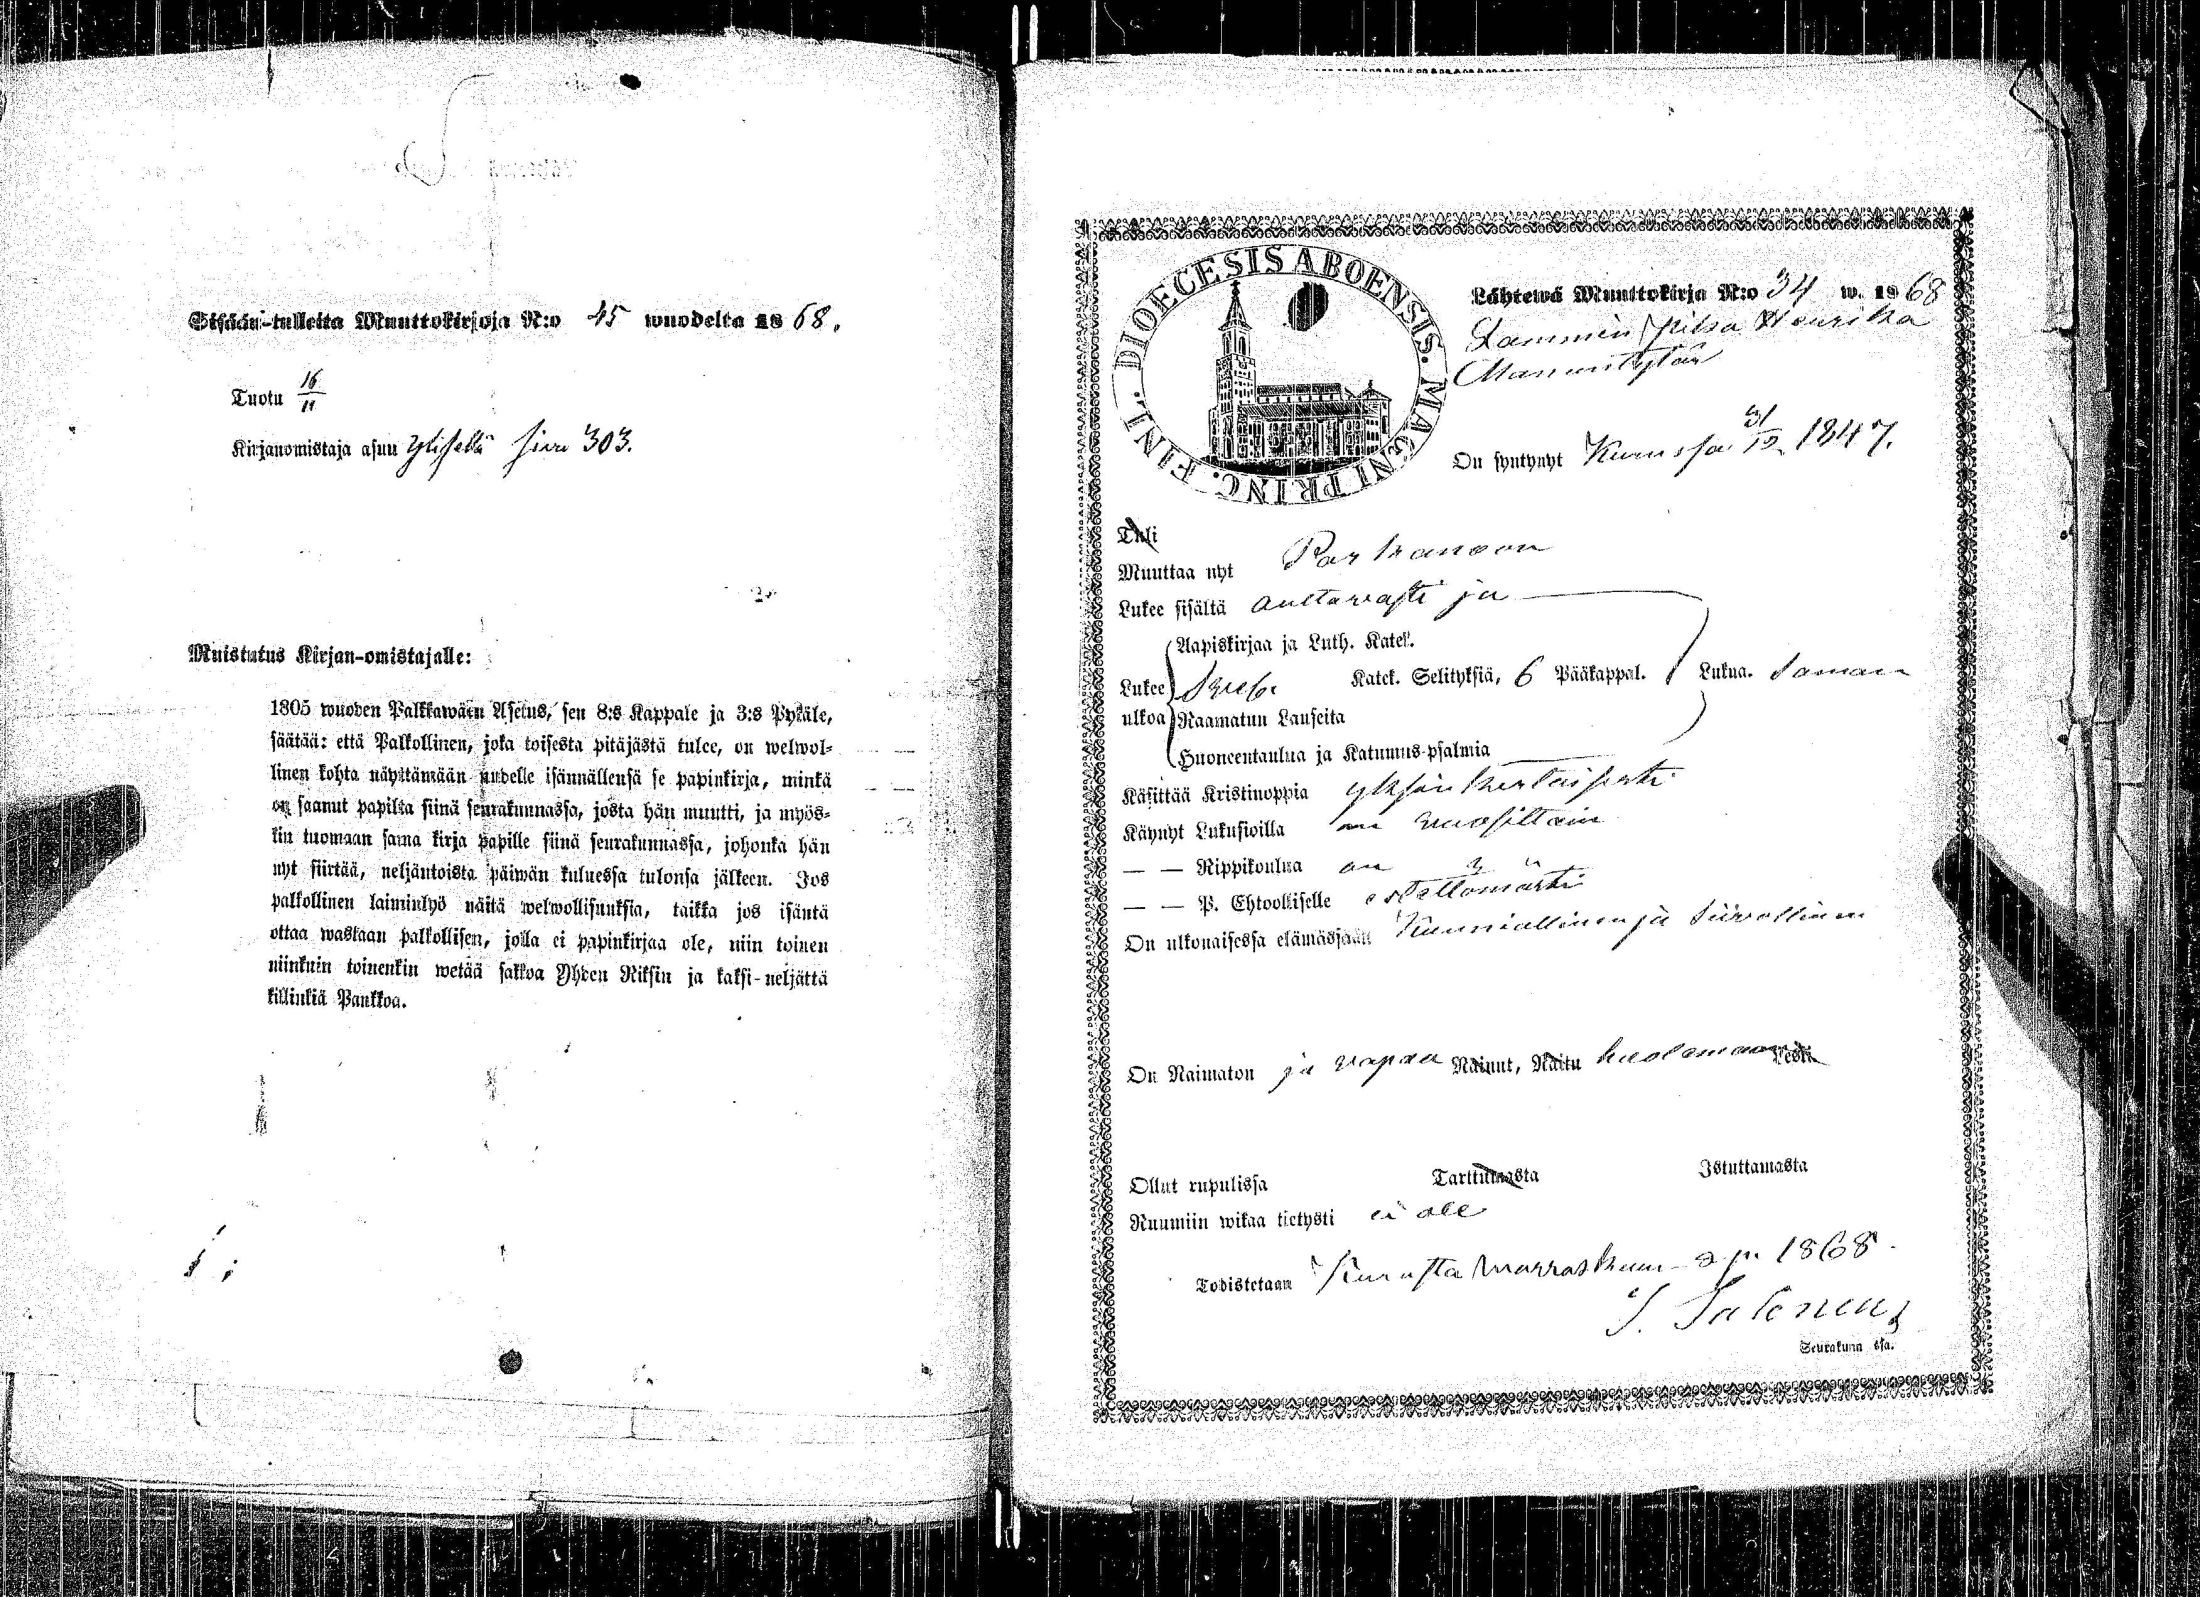 Sisään-tulleita Muuttokirjoja N:o 45 wuodelta 1868.
Tuotu 16/11
Kirjanomistaja asuu Ylisellä sivu 303.
Muistutus Kirjan-omistajalle:
1805 wuoden Palkkawäen Asetus, sen 8:s Kappale ja 3:s Pykäle,
säätää: että Palkollinen, joka toisesta pitäjästä tulee, on welwol-
linen kohta näyttämään uudelle isännällensä se papinkirja, minkä
on saanut papilta siinä seurakunnassa, josta hän muutti, ja myös-
kin tuomaan sama kirja papille siinä seurakunnassa, johonka hän
nyt siirtää, neljäntoista päiwän kuluessa tulonsa jälkeen. Jos
palkollinen laiminlyö näitä welwollisuuksia, taikka jos isäntä
ottaa wastaan palkollisen, jolla ei papinkirjaa ole, niin toinen
niinkuin toinenkin wetää sakkoa Yhden Riksin ja kaksi-neljättä
killinkiä Pankkoa.
DIOECESIS ABOENSIS. MAGNI PRINC. FINL.
Lähtewä Muuttokirja N:o 34 w. 1868
Lammin piika Henrika
Manuntytär
On syntynyt Kurussa 31/12 1847.
Tuli
Muuttaa nyt Parkanoon
Lukee sisältä auttawasti ja
Aapiskirjaa ja Luth. Katek.
Lukee Katek. Selityksiä, 6 Pääkappal. Lukua. Saman
ulkoa Raamatun Lauseita
Huoneentaulua ja Katumus-psalmia
Käsittää Kristinoppia yksinkertaisesti
Käynyt Lukusioilla on wuosittain
— — Rippikoulua on
— — P. Ehtoolliselle estettömästi
On ulkonaisessa elämässään Kunniallinen ja siiwollinen
On Naimaton ja wapaa Nainut, Naitu huolemaan Leski
Ollut rupulissa Tarttumasta Istuttamasta
Ruumiin wikaa tietysti ei ole
Todistetaan Kurusta marraskuun 2 p. 1868.
J. Salonen,
Seurakunn ssa.